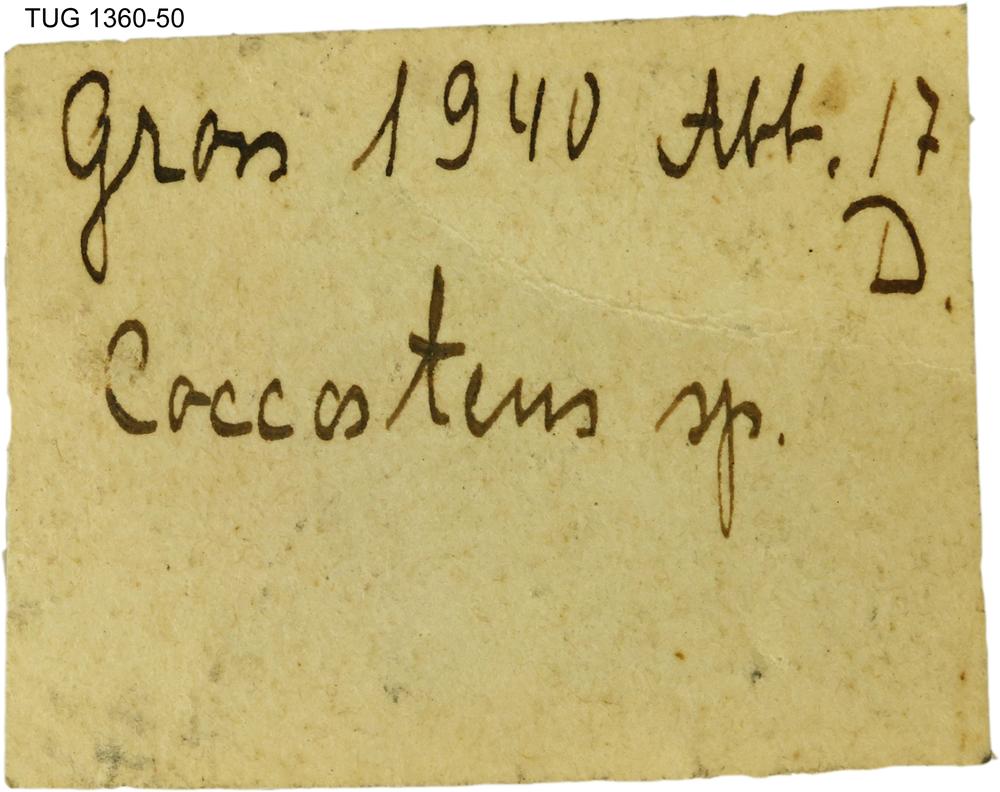 TUG 1360-50
Gross 1940 Abb. 17
D.
Coccosteus sp.